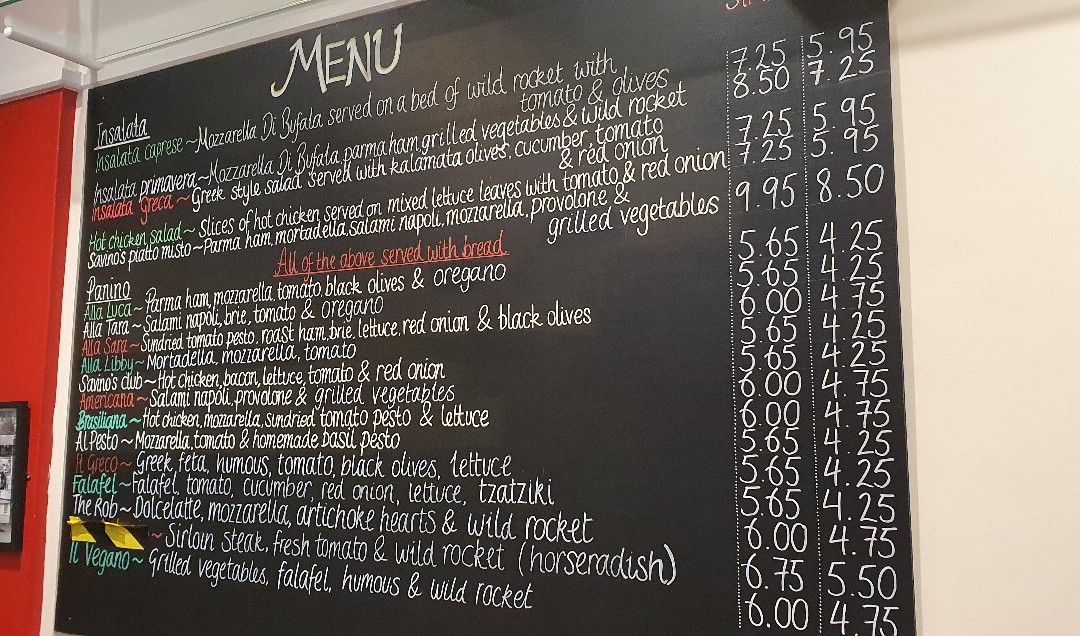 MENU
Insalata
Insalata caprese ~ Mozzarella Di Bufala served on a bed of wild rocket with 7.25 5.95
tomato & olives
Insalata primavera ~ Mozzarella Di Bufala, parma ham, grilled vegetables & wild rocket 8.50 7.25
Insalata Greca ~ Greek style salad served with kalamata olives, cucumber, tomato 7.25 5.95
& red onion
Hot chicken salad ~ Slices of hot chicken served on mixed lettuce leaves with tomato & red onion 7.25 5.95
Savino's piatto misto ~ Parma ham, mortadella, salami napoli, mozzarella, provolone & 9.95 8.50
grilled vegetables
All of the above served with bread.
Panino
Alla Luca ~ Parma ham, mozzarella, tomato black olives & oregano 5.65 4.25
Alla Tara ~ Salami napoli, brie, tomato & oregano 5.65 4.25
Alla Sara ~ Sundried tomato pesto, roast ham, brie, lettuce, red onion & black olives 6.00 4.75
Alla Libby ~ Mortadella, mozzarella, tomato 5.65 4.25
Savino's club ~ Hot chicken, bacon, lettuce, tomato & red onion 5.65 4.25
Americana ~ Salami napoli, provolone & grilled vegetables 6.00 4.75
Brasiliana ~ Hot chicken, mozzarella, sundried tomato pesto & lettuce 6.00 4.75
Al Pesto ~ Mozzarella, tomato & homemade basil pesto 5.65 4.25
Il Greco ~ Greek feta, humous, tomato, black olives, lettuce 5.65 4.25
Falafel ~ Falafel, tomato, cucumber, red onion, lettuce, tzatziki 5.65 4.25
The Rob ~ Dolcelatte, mozzarella, artichoke hearts & wild rocket 6.00 4.75
~ Sirloin steak, fresh tomato & wild rocket (horseradish) 6.75 5.50
Il Vegano ~ Grilled vegetables, falafel, humous & wild rocket 6.00 4.75